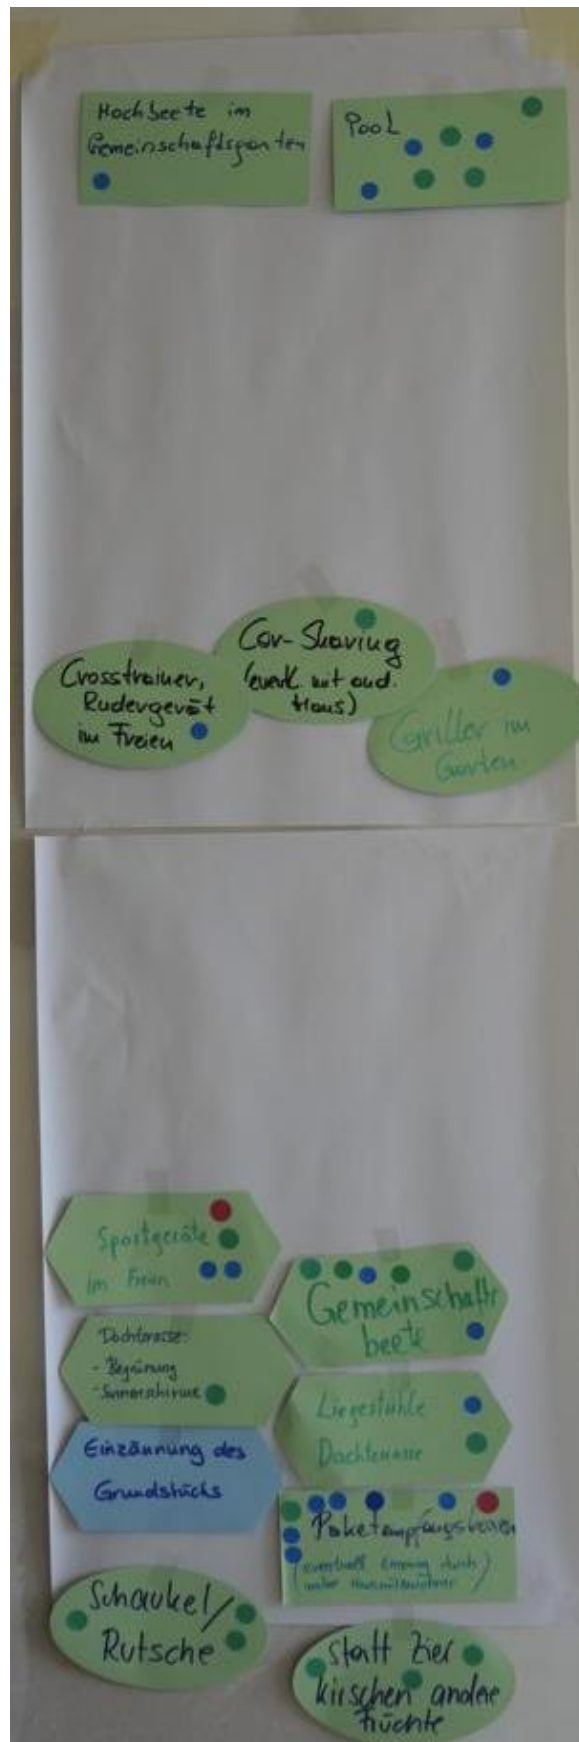 Hochbeete im
Gemeinschaftsgarten
Pool
Car-Sharing
(event. mit and.
Haus)
Crosstrainer,
Rudergerät
im Freien
Griller im
Garten
Sportgeräte
im Freien
Gemeinschafts
beete
Dachterasse:
- Begrünung
- Sonnenschirme
Liegestühle
Dachterrasse
Einzäunung des
Grundstücks
Paketempfangsboxen
(eventuell durch)
Schaukel/
Rutsche
statt Zier
kirschen andere
Früchte